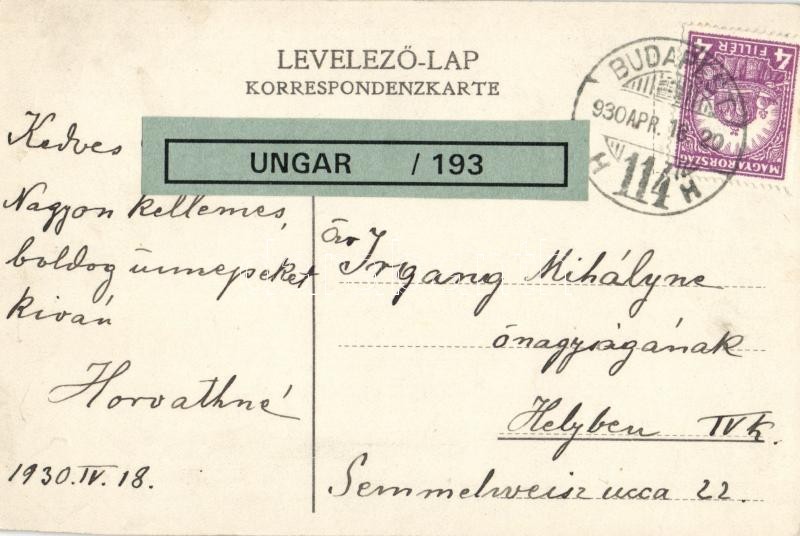 LEVELEZŐ-LAP
KORRESPONDENZKARTE
UNGAR / 193
BUDAPEST
930 APR. 18. 20
114
H H
4 4
FILLÉR
MAGYARORSZÁG
Kedves
Nagyon kellemes,
boldog ünnepeket
kiván
Horvathné
1930.IV.18.
Irgang Mihályne
őnagyságának
Helyben IV k.
Semmelweisz ucca 22.